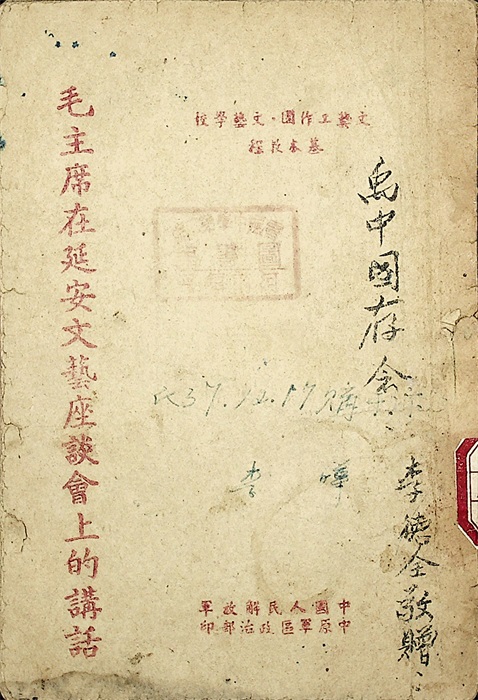 毛主席在延安文藝座談會上的講話
文藝工作團·文藝學校
基本程
中國存念、
李德全敬贈、
37.12.17購
李
中國人民解放軍
中原軍區政治部印